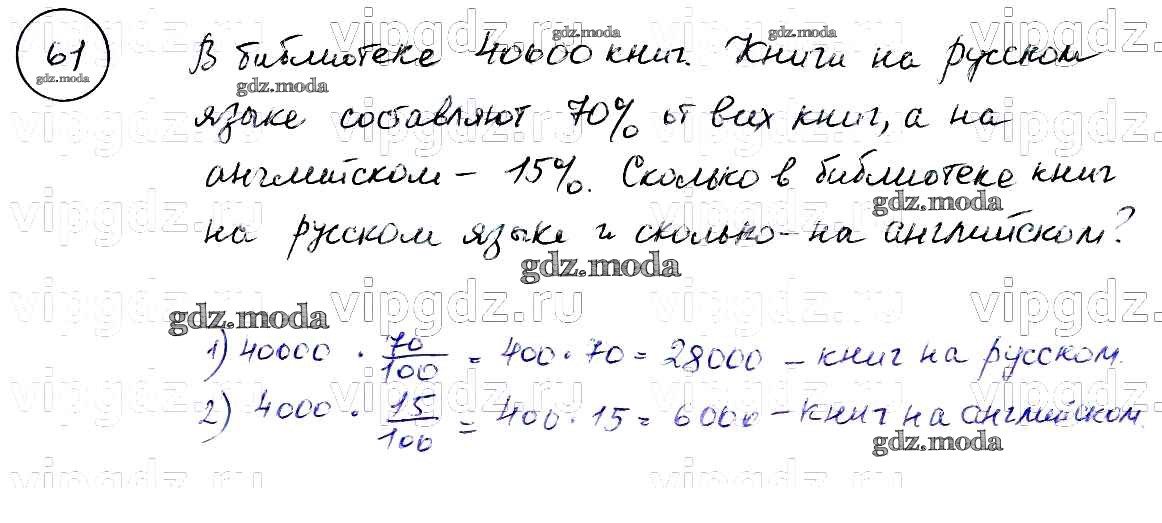 61
В библиотеке 40000 книг. Книги на русском
языке составляют 70% от всех книг, а на
английском - 15%. Сколько в библиотеке книг
на русском языке и сколько - на английском?
1) 40000 · 70/100 = 400 · 70 = 28000 - книг на русском.
2) 4000 · 15/100 = 400 · 15 = 6000 - книг на английском.
gdz.moda
vipgdz.ru